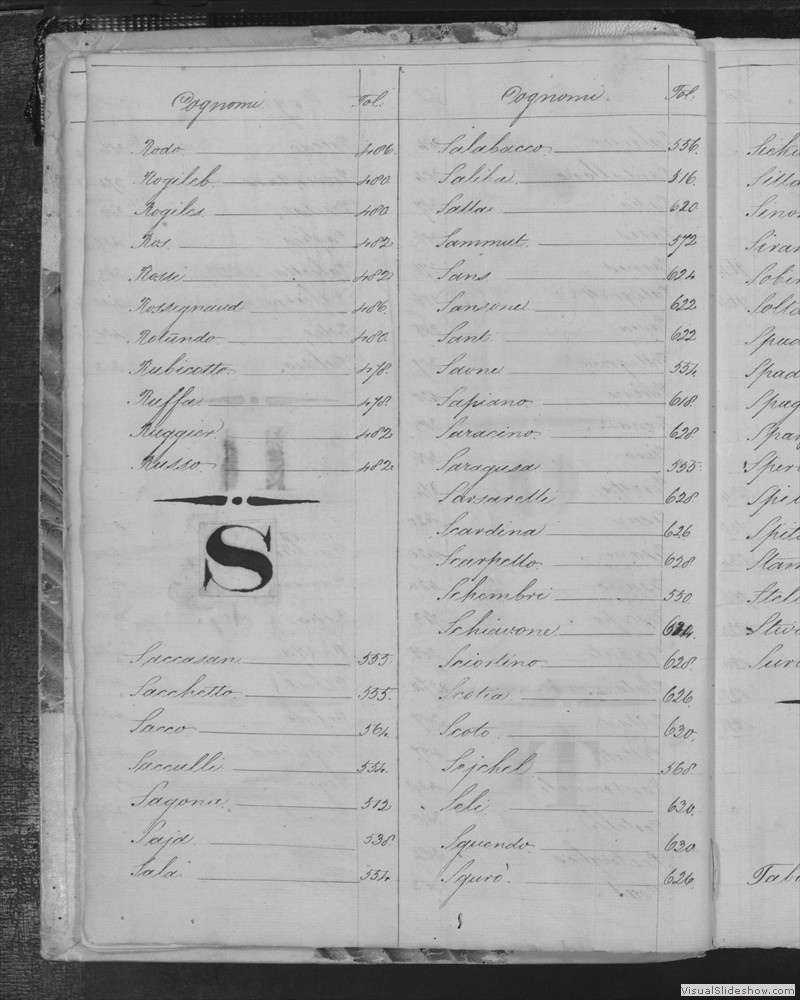 Cognomi. Fol.
Rodo 486.
Rogileb. 480.
Rogiles. 480
Ros. 482
Rossi 482
Rossignaud 486.
Rotundo 480.
Rubicotto. 478.
Ruffa 478.
Ruggier. 482
Russo 482
S
Saccasan 555.
Sacchetto. 555.
Sacco 564.
Sacculli 554.
Sagona. 512
Sajd 538.
Sala 554
Cognomi. Fol.
Salabacco 556.
Saliba. 516.
Salla 620
Sammut. 572
Sans 624
Sansone 622
Sant. 622
Saone 554
Sapiano. 618.
Saracino. 628
Saragusa 555.
Sarsarelli 628
Scardina 626
Scarpello. 628
Schembri 550.
Schiavone
Sciortino 628.
Scotia 626.
Scoto. 630.
Sejchel 568
Seli 630.
Sguendo. 630
Sgurò. 626.
Spad
Spad
Stam
VisualSlideshow.com